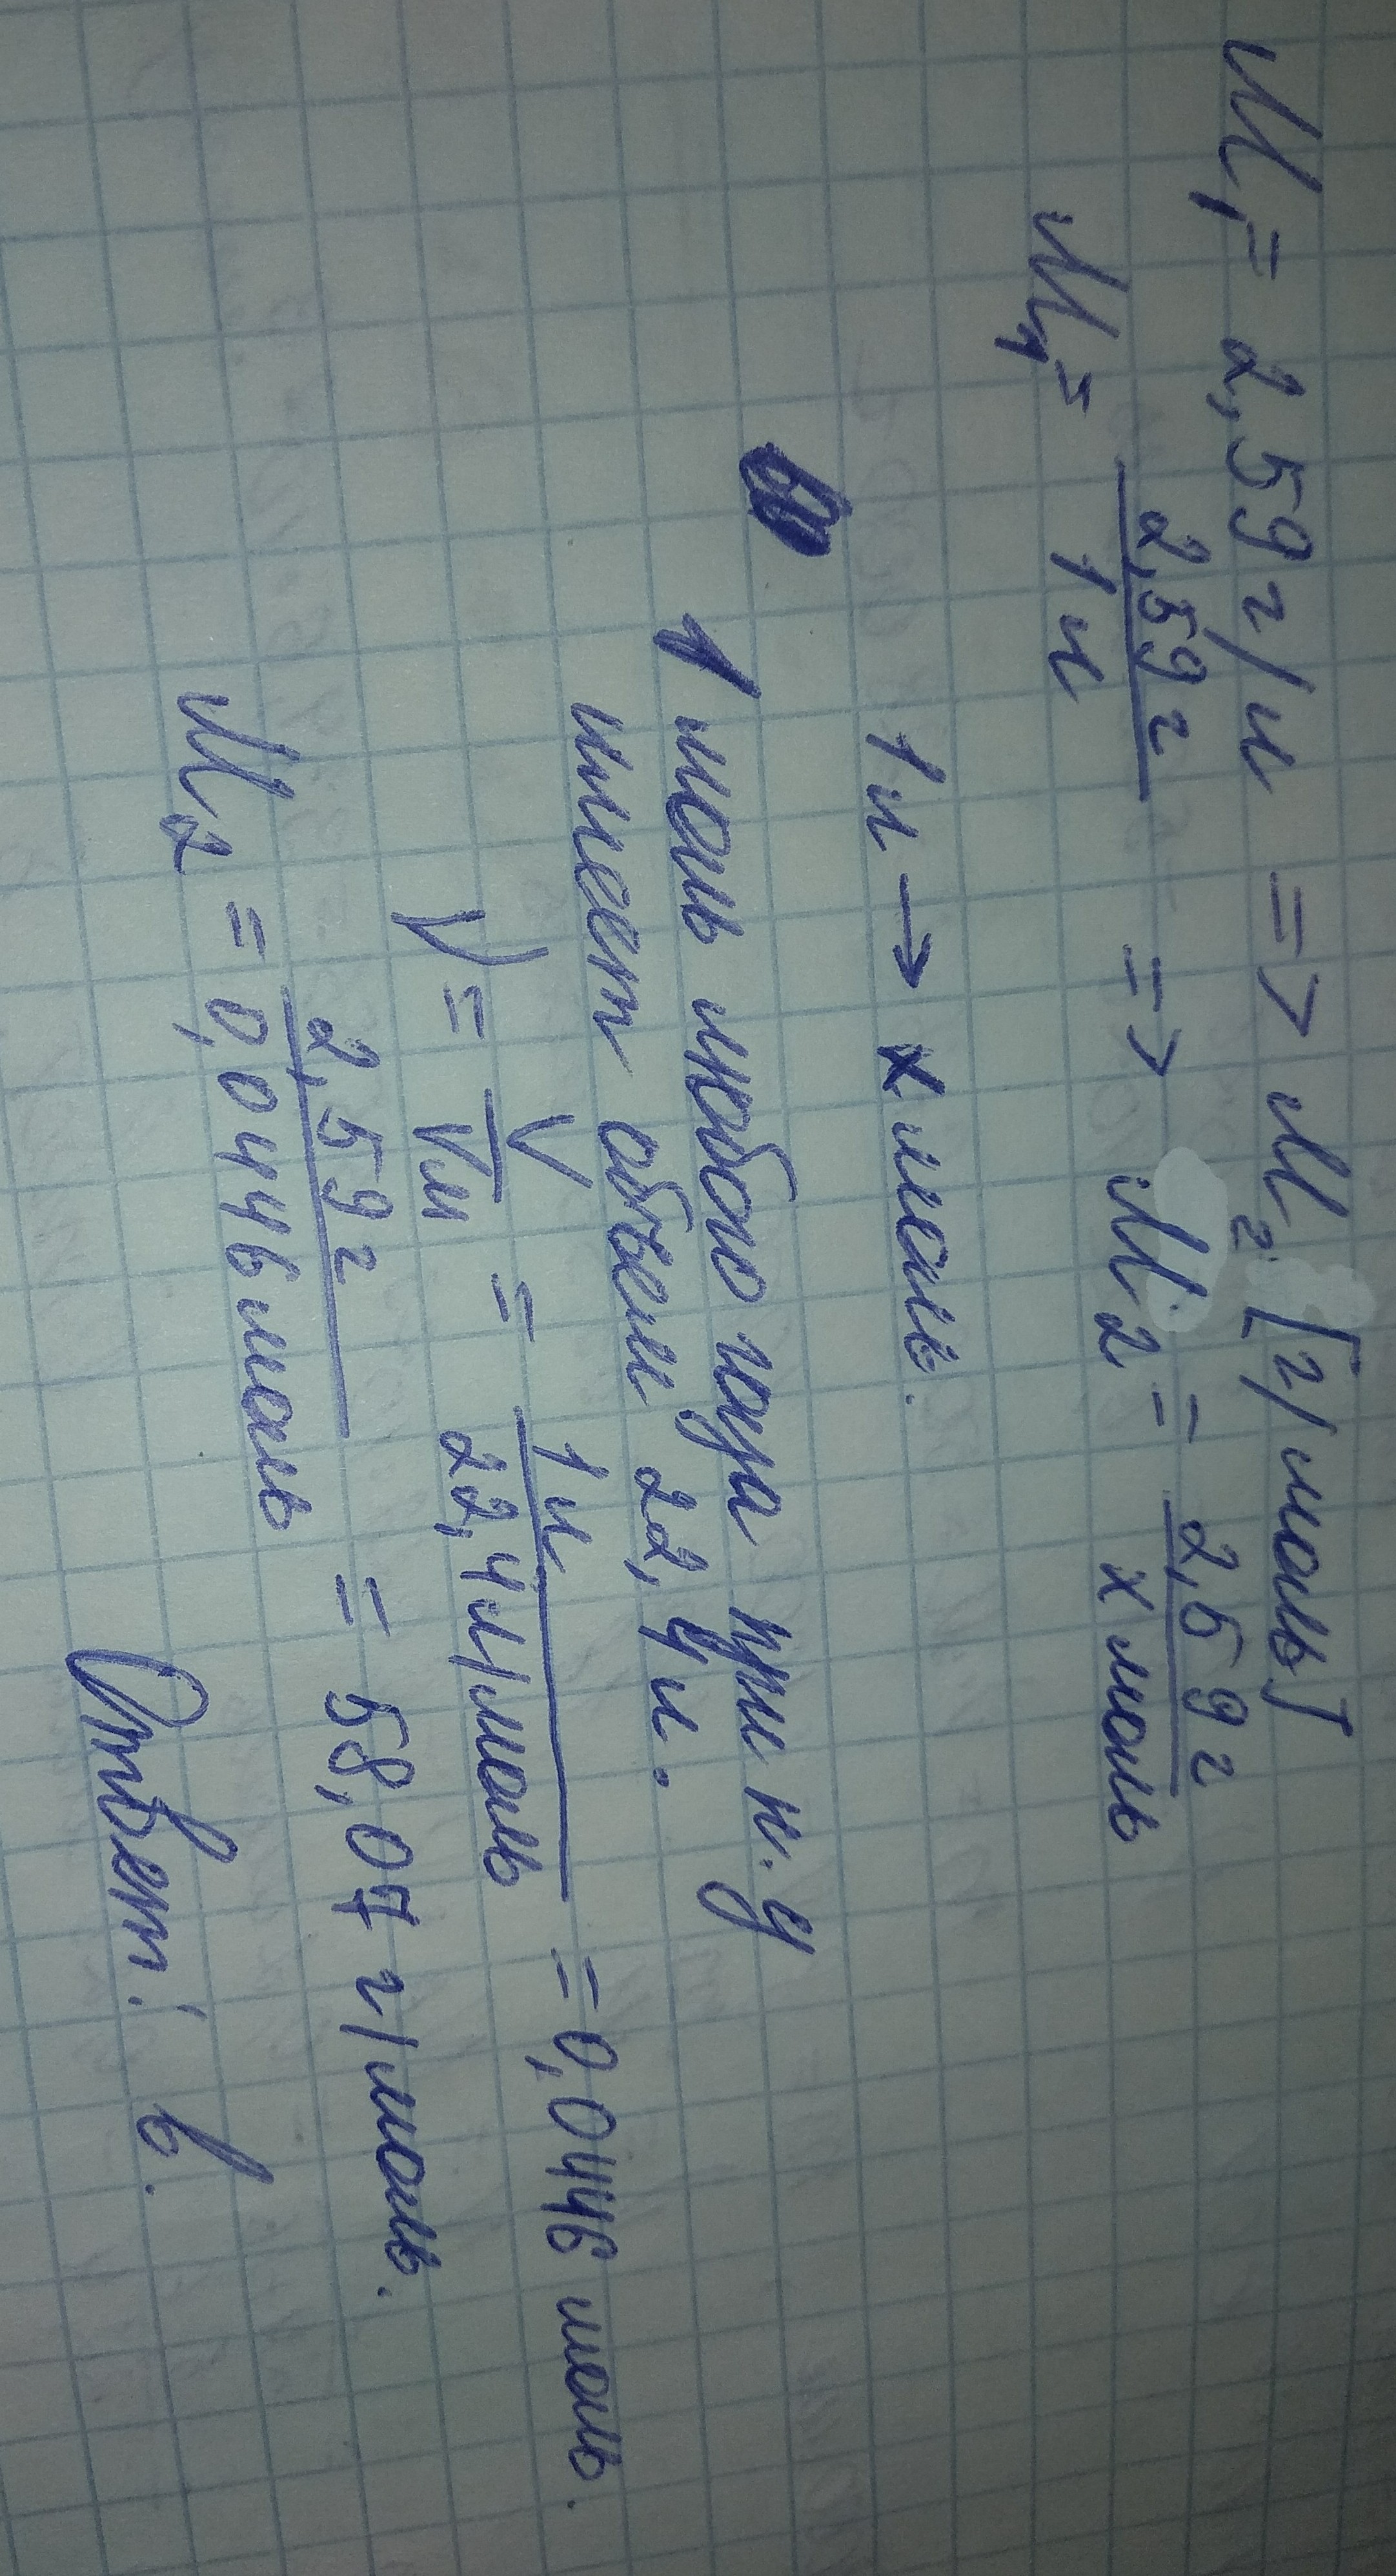 M₁ = 2,59 г/л => M₂ [г/моль]
M₁ = 2,59 г / 1 л => M₂ = 2,59 г / x моль
1 л → x моль.
1 моль любого газа при н.у
имеет объем 22,4 л.
ν = V / Vм = 1 л / 22,4 л/моль = 0,0446 моль.
M₂ = 2,59 г / 0,0446 моль = 58,07 г/моль.
Ответ: в.